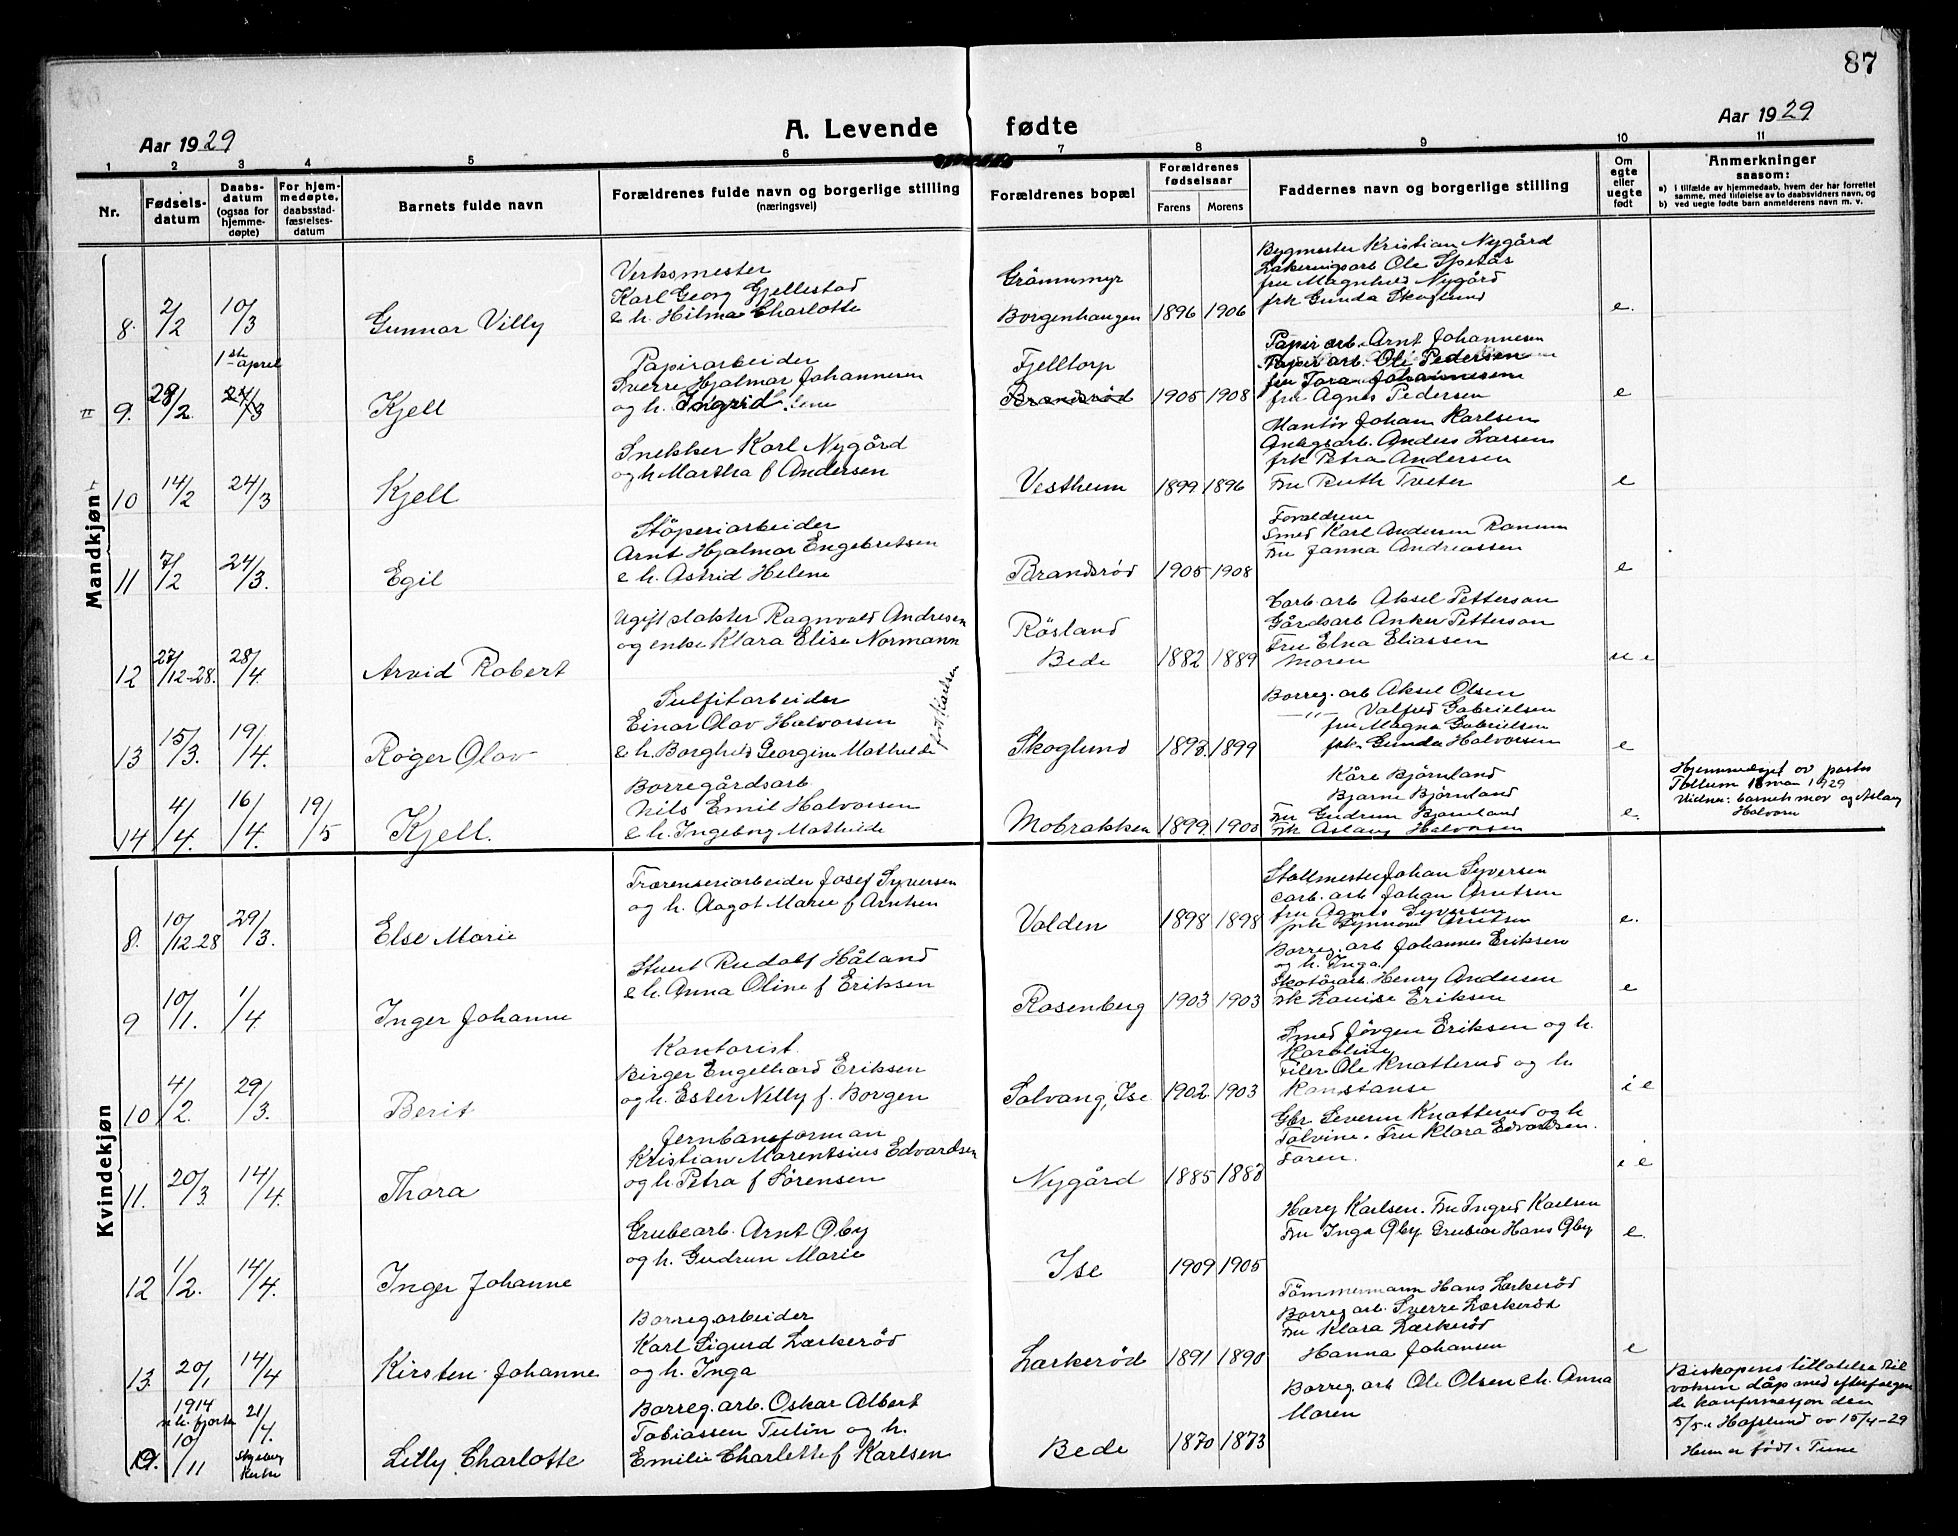 87
Aar 1929
A. Levende fødte
Aar 1929
1 2 3 4 5 6 7 8 9 10 11
Nr.
Fødsels-
datum
Daabs-
datum
(ogsaa for
hjemme-
døpte)
For hjem-
medøpte,
daabsstad-
fæstelses-
datum
Barnets fulde navn
Forældrenes fulde navn og borgerlige stilling
(næringsvei)
Forældrenes bopæl
Forældrenes
fødselsaar
Farens Morens
Faddernes navn og borgerlige stilling
Om
egte
eller
uegte
født
Anmerkninger
saasom:
a) i tilfælde av hjemmedaab, hvem der har forrettet
samme, med tilføielse av to daabsvidners navn, og
b) ved uegte fødte barn anmelderens navn m. v.
Mandkjøn
8. 2/2 10/3 Gunnar Villy
Verksmester
Karl Georg Gjellestad
e h. Hilma Charlotte
Grönnmyr
Borgenhaugen 1896 1906
Bygmester Kristian Nygård
Ole Spetås
fru Magnhild Nygård
frk Gunda Skoglund
e.
9. 28/2 1ste april 24/3 Kjell
Papirarbeider
Sverre Hjalmar Johannesen
og h. Ingrid
Fjelltorp
Brandsrød 1905 1908
Papir arb. Arnt Johannesen
Papir arb. Ole Pedersen
fru Tora Johannesen
frk Agnes Pedersen
e
10 14/2 24/3 Kjell
Snekker Karl Nygård
og h Martha f Andersen
Vestheim 1899 1896
Mantör Johan Karlsen
Anlegsarb. Anders Larsen
frk Petra Andersen
Fru Ruth Tveter
e
11 7/2 24/3. Egil
Stöperiarbeider
Arnt Hjalmar Engebretsen
e h. Astrid Helene
Brandsrød 1905 1908
Foreldrene
Smed Karl Andersen Ranum
Fru Janna Andreassen
e
12 27/12-28. 28/4. Arvid Robert
Ugift slakter Ragnvald Andresen
og enke Klara Elise Normann
født Nielsen
Rösland
Bede 1882 1889
Carb. arb Aksel Petterson
Gårdsarb Anker Petterson
Fru Elna Eliassen
Moren
u e
13 15/3. 19/4. Roger Olav
Sulfitarbeider
Einar Olav Halvorsen
e h. Borghild Georgine Mathilde
Skoglund 1893 1899
Borreg. arb Aksel Olsen
—"— Valfred Gabrielsen
fru Magna Gabrielsen
frk. Gunda Halvorsen
e
14 4/4. 16/4. 19/5 Kjell.
Borregårdsarb.
Nils Emil Halvorsen
e h. Ingeborg Mathilde
Mobrakken 1899. 1903
Kåre Björnland
Bjarne Björnland
Fru Gudrun Björnland
Frk Aslaug Halvorsen
e.
Hjemmedøpt av pastor
Tollum 16 mai 1929
Vidner: barnets mor og Aslaug
Halvorsen
Kvindekjøn
8. 10/12-28 29/3. Else Marie
Trærenseriarbeider Josef Syversen
og h. Aagot Marie f Arntsen
Valden 1898 1898
Stallmester Johan Syversen
carb. arb. Johan Arntsen
fru Agnes Syversen
frk Synnøve Arntsen
e.
9 10/1. 1/4 Inger Johanne
Stuert Rudolf Håland
e h. Anna Oline f Eriksen
Rosenberg 1903 1903
Borreg. arb Johannes Eriksen
og h. Inga
Skotöiarb. Henry Andersen
Frk Louise Eriksen
e
10 4/2. 29/3. Berit
Kontorist.
Birger Engelhard Eriksen
og h. Ester Nelly f. Borgen
Solvang, Ise 1902. 1903
Smed Jörgen Eriksen og h.
Karoline
Filer Ole Knatterud og h
Konstanse
i e
11. 20/3. 14/4. Thora
Jernbaneforman
Kristian Marentsius Edvardsen
og h. Petra f Sörensen
Nygård 1885 1883
Gbr. Severin Knatterud og h
Tolvine. Fru Klara Edvardsen.
Faren.
i e
12 1/2. 14/4. Inger Johanne
Grubearb. Arnt Øby
og h. Gudrun Marie
Ise 1909 1905
Hary Karlsen. Fru Ingrid Karlsen
Fru Inga Øby Grubear Hans Øby
e.
13. 20/1 14/4 Kirsten Johanne
Borreg.arbeider
Karl Sigurd Lærkerød
og h. Inga
Lærkerød 1891 1890
Tömmermann Hans Lærkerød
Borreg arb. Sverre Lærkerød
Fru Klara Lærkerød
Hanna Johansen
e
1914
10/11 21/4. Lilly Charlotte
Borreg. arb. Oskar Albert
Tobiassen Tulin og h.
Emilie Charlotte f Karlsen
Bede 1870 1873
Borreg. arb Ole Olsen e h. Anna
Moren
Biskopens tillatelse til
voksen dåp med efterfølgen
de konfirmasjon den
5/5 i Hafslund av 15/4-29
Hun er født i Tune